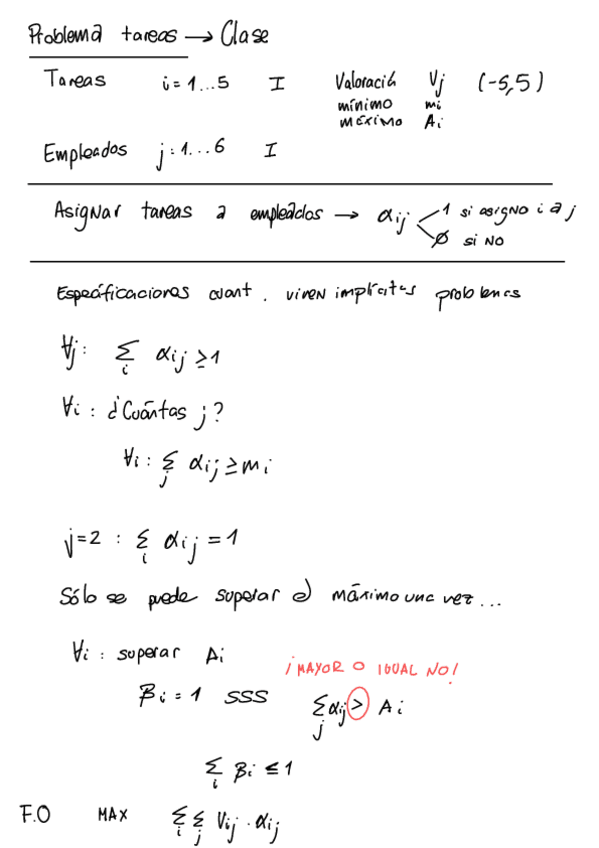 Problema tareas → Clase
Tareas i=1...5 I Valoració Vj (-5,5)
mínimo mi
máximo Ai
Empleados j:1...6 I
Asignar tareas a empleados → αij 1 si asigno i a j
Ø si NO
Especificaciones cuant. viven implícitas problemas
∀j: Σi αij ≥1
∀i: ¿Cuántas j?
∀i: Σj αij ≥ mi
j=2 : Σi αij = 1
Sólo se puede superar el máximo una vez...
∀i: superar Ai
¡MAYOR O IGUAL NO!
βi = 1 SSS Σj αij > Ai
Σi βi ≤ 1
F.O MAX Σi Σj Vij · αij